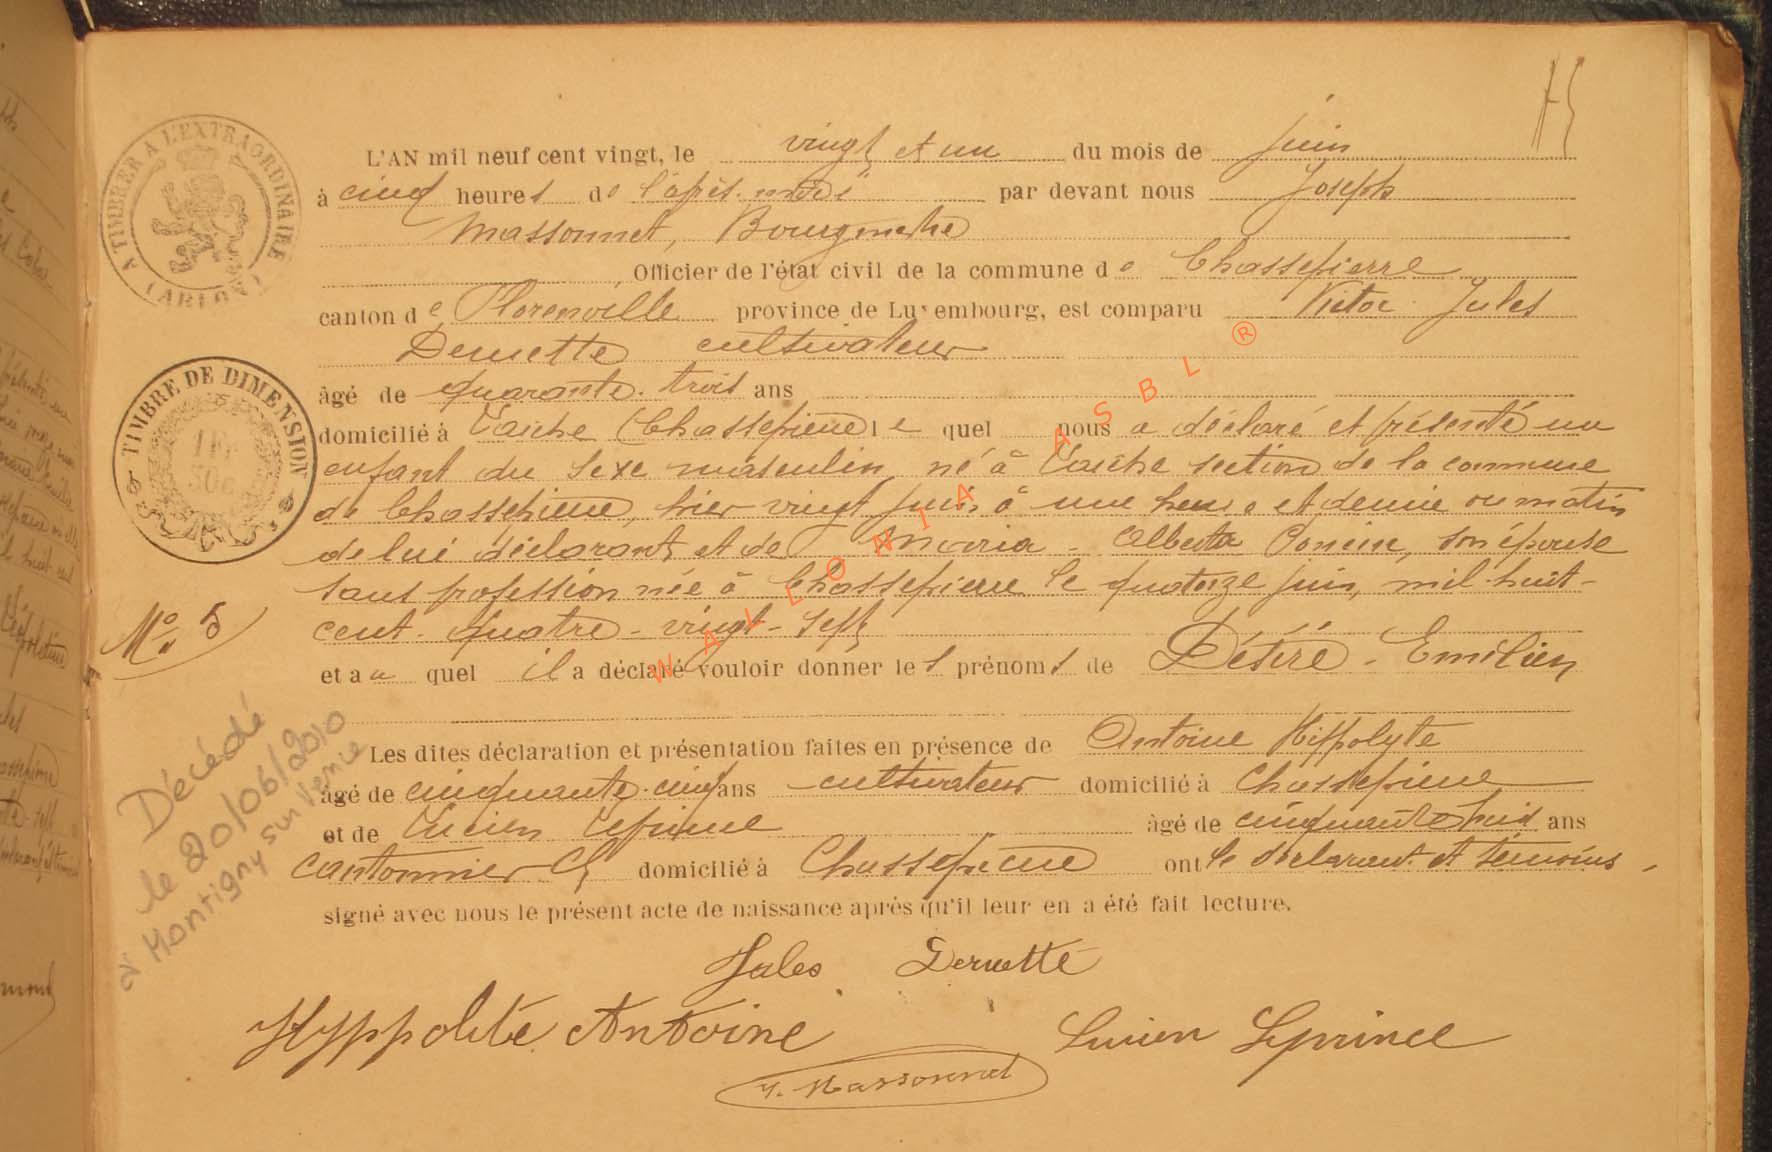 75
L'AN mil neuf cent vingt, le vingt et un du mois de juin
à cinq heures de l'après-midi par devant nous Joseph
Massonnet, Bourgmestre
Officier de l'état civil de la commune de Chassepierre
canton de Florenville province de Luxembourg, est comparu Victor Jules
Dernette cultivateur
âgé de quarante-trois ans
domicilié à Laiche (Chassepierre) le quel nous a déclaré et présenté un
enfant du sexe masculin, né à Laiche section de la commune
de Chassepierre, hier vingt juin à une heure et demie du matin
de lui déclarant et de Maria - Alberta Poncin, son épouse
sans profession née à Chassepierre le quatorze juin, mil-huit-
cent-quatre-vingt-sept
et au quel il a déclaré vouloir donner les prénoms de Désiré - Emilien
Les dites déclaration et présentation faites en présence de Antoine Hippolyte
âgé de cinquante-cinq ans cultivateur domicilié à Chassepierre
et de Lucien Leprince âgé de cinquante huit ans
cantonnier domicilié à Chassepierre ont le déclarant et témoins,
signé avec nous le présent acte de naissance après qu'il leur en a été fait lecture.
Jules Dernette
Hyppolite Antoine
Lucien Leprince
J. Massonnet
A TIMBRER A L'EXTRAORDINAIRE
(ARLON)
TIMBRE DE DIMENSION
1 Fr
50c
No 5
Décédé
le 20/06/2010
à Montigny sur Vence
WALLONIA ASBL ®